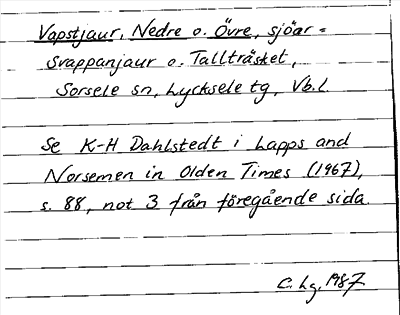 Vapstjaur, Nedre o. Övre, sjöar =
Svappanjaur o. Tallträsket,
Sorsele sn, Lycksele tg, Vb.l.
Se K-H Dahlstedt i Lapps and
Norsemen in Olden Times (1967),
s. 88, not 3 från föregående sida.
C. Lg. 1987